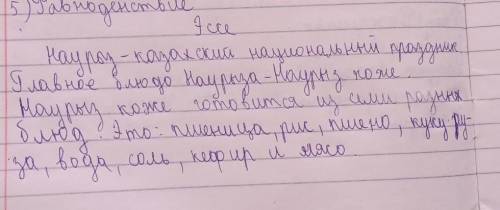 5) Равноденствие
Эссе
Наурыз-казахский национальный праздник
Главное блюдо Наурыза-Наурыз коже.
Наурыз коже готовится из семи разных
блюд. Это: пшеница, рис, пшено, кукуру-
за, вода, соль, кефир и мясо.